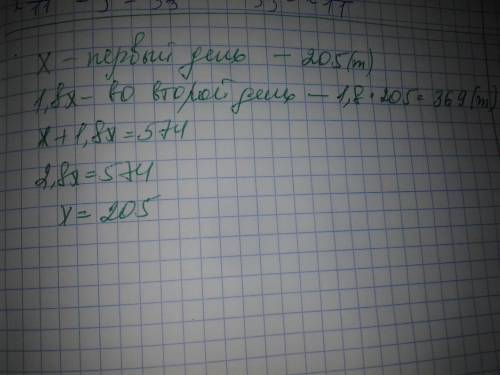 x - первый день - 205 (т)
1,8x - во второй день - 1,8 · 205 = 369 (т)
x + 1,8x = 574
2,8x = 574
x = 205